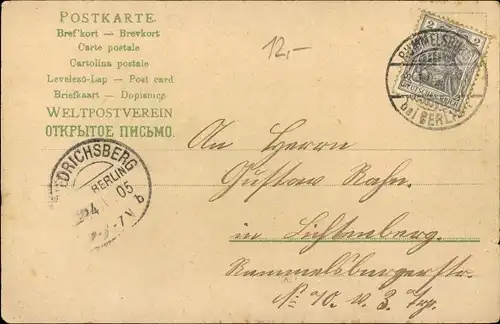 POSTKARTE.
Bref'kort — Brevkort
Carte postale
Cartolina postale
Levelező-Lap — Post card
Briefkaart — Dopisnice
WELTPOSTVEREIN
ОТКРЫТОЕ ПИСЬМО.
12,-
2 2
RUMMELSBURG
bei BERLIN
An Herrn
Gustav Rahn.
in Lichtenberg.
Rummelsburgerstr.
No 70. v. 3. Trp.
FRIEDRICHSBERG
BERLIN
05
b